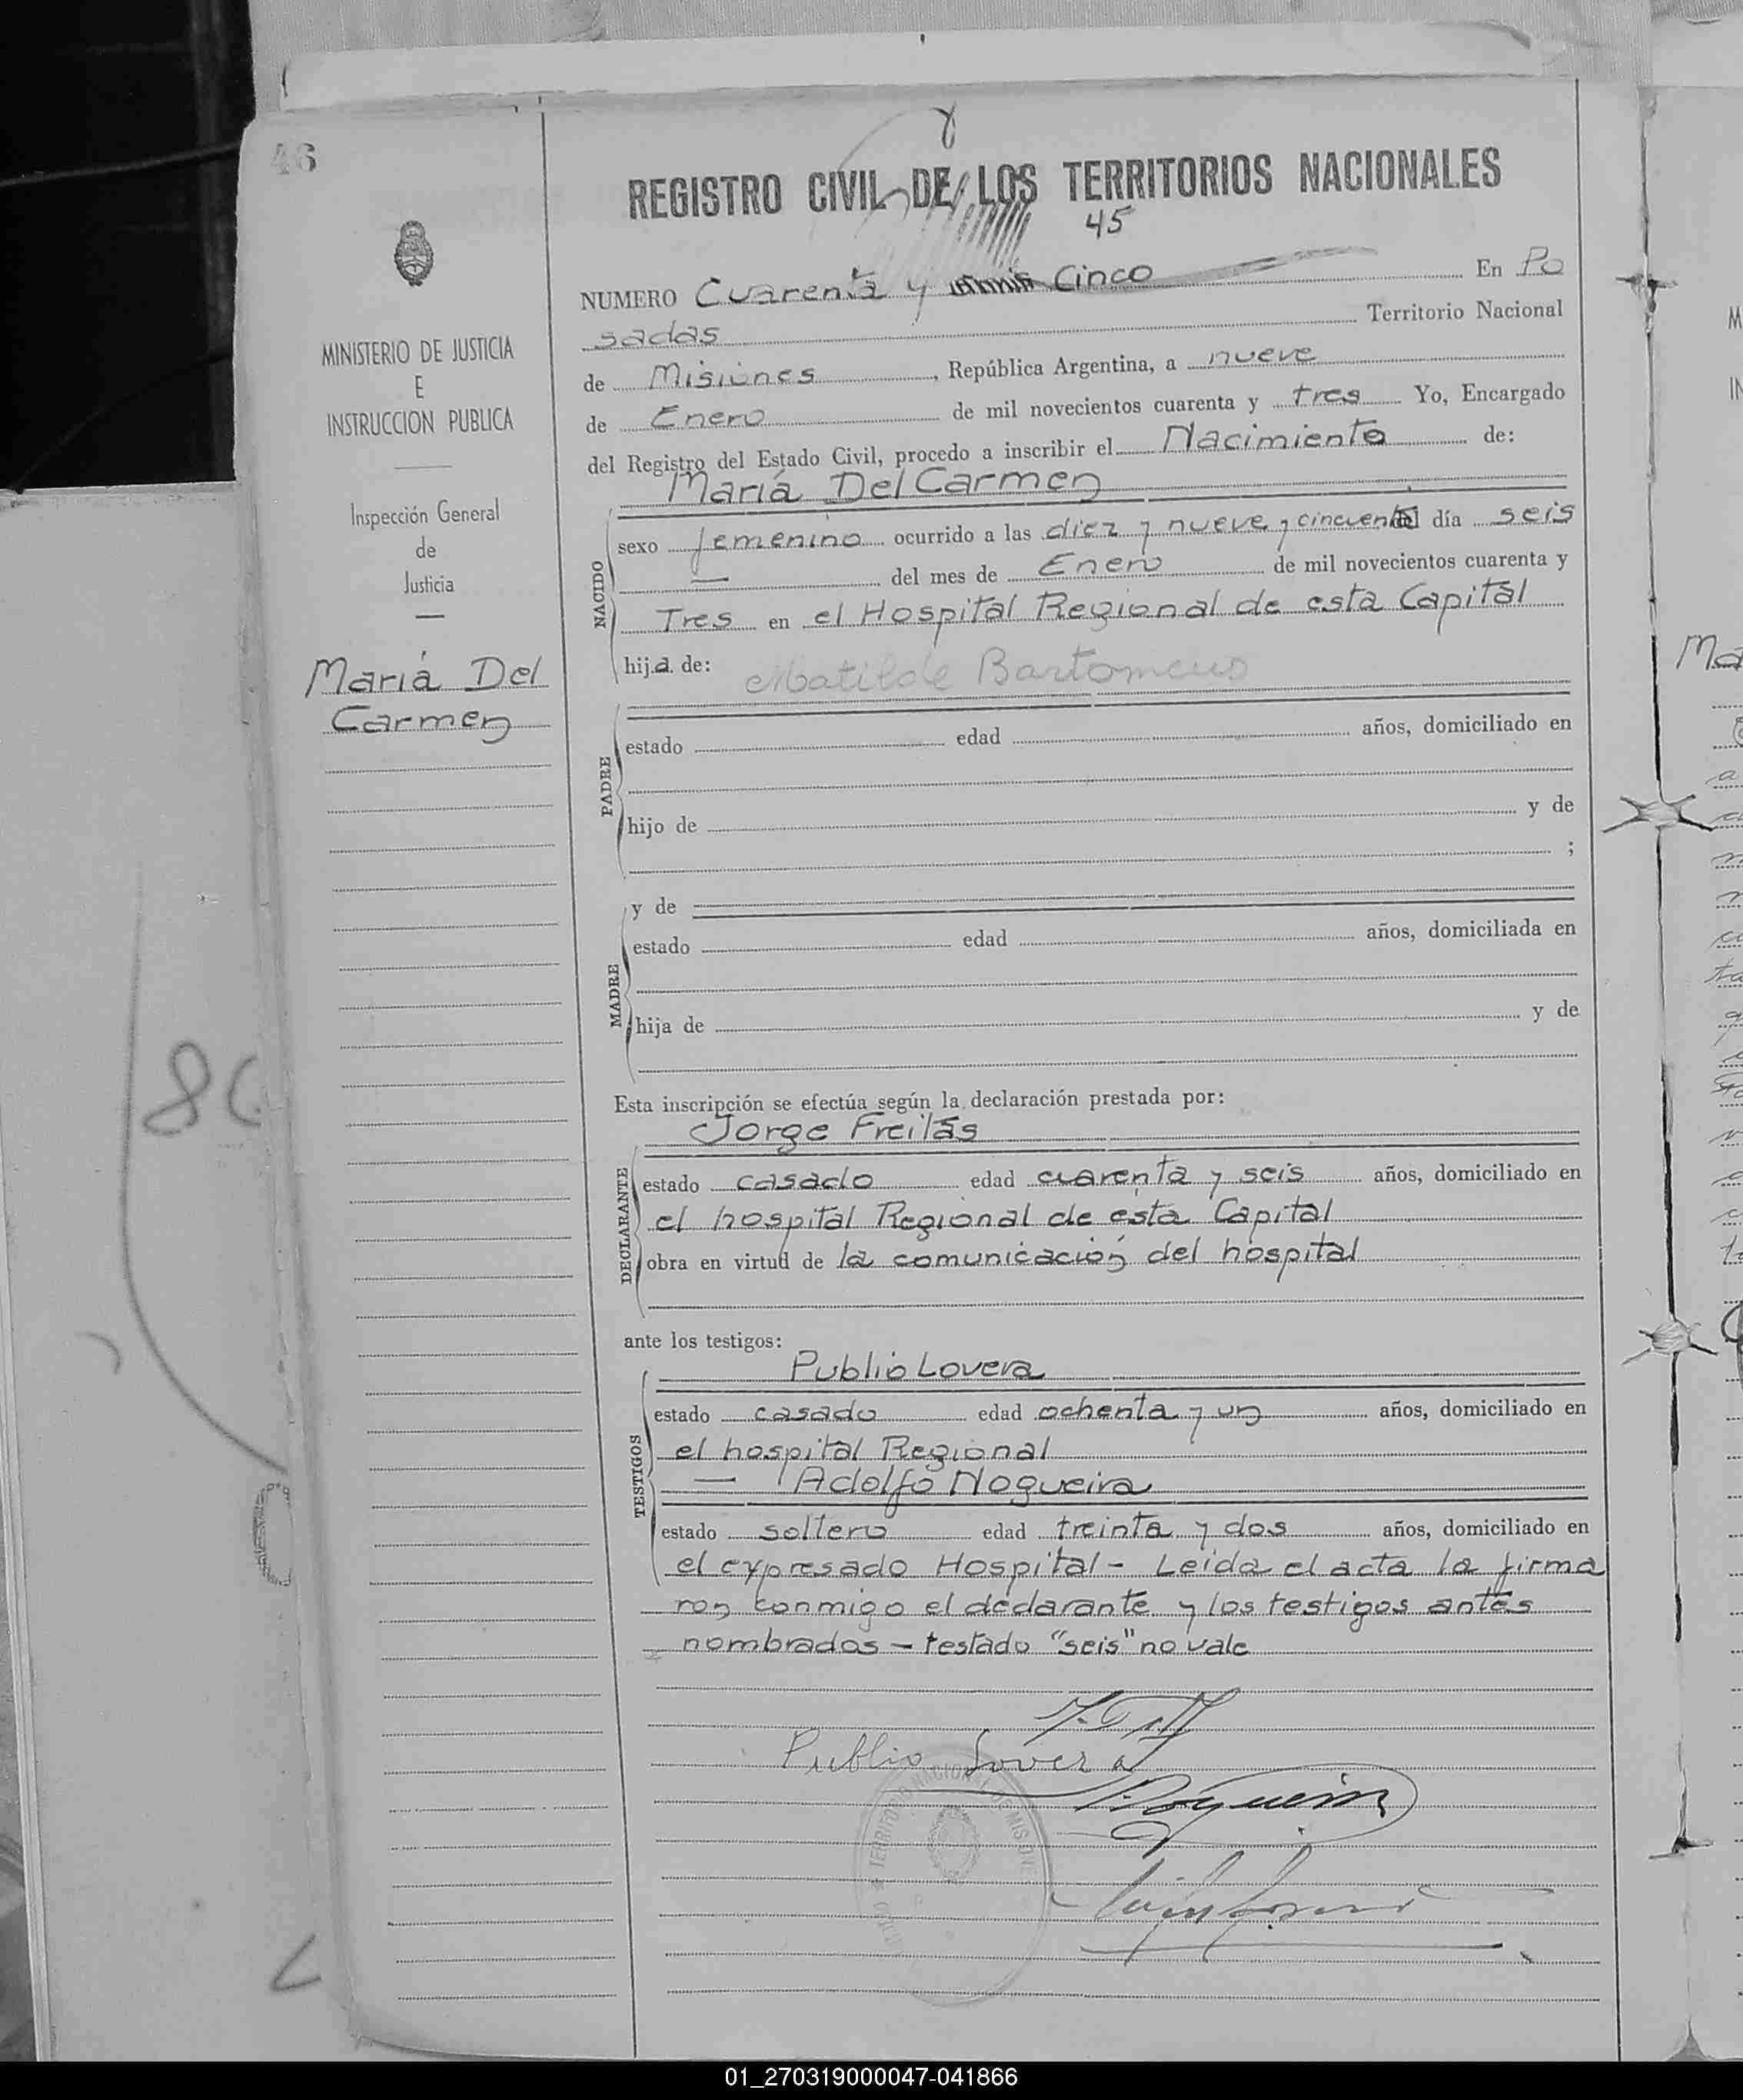 46
REGISTRO CIVIL DE LOS TERRITORIOS NACIONALES
45
NUMERO Cuarenta y Cinco En Po
sadas Territorio Nacional
de Misiones, República Argentina, a nueve
de Enero de mil novecientos cuarenta y tres Yo, Encargado
del Registro del Estado Civil, procedo a inscribir el Nacimiento de:
María Del Carmen
NACIDO
sexo femenino ocurrido a las diez y nueve y cincuenta del día seis
— del mes de Enero de mil novecientos cuarenta y
Tres en el Hospital Regional de esta Capital
hija de: Matilde Bartomeus
PADRE
estado edad años, domiciliado en
hijo de y de
;
MADRE
y de
estado edad años, domiciliada en
hija de y de
Esta inscripción se efectúa según la declaración prestada por:
Jorge Freitas
DECLARANTE
estado casado edad cuarenta y seis años, domiciliado en
el hospital Regional de esta Capital
obra en virtud de la comunicación del hospital
ante los testigos:
Publio Lovera
TESTIGOS
estado casado edad ochenta y un años, domiciliado en
el hospital Regional
— Adolfo Nogueira
estado soltero edad treinta y dos años, domiciliado en
el expresado Hospital - Leida el acta la firma
ron conmigo el declarante y los testigos antes
nombrados - testado "seis" no vale
Publio Lovera
Nogueira
MINISTERIO DE JUSTICIA
E
INSTRUCCION PUBLICA
Inspección General
de
Justicia
María Del
Carmen
01_270319000047-041866